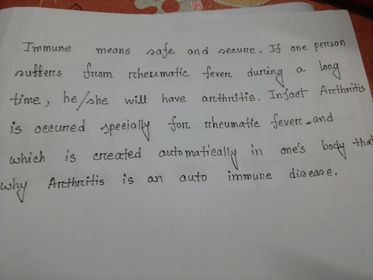 Immune means safe and secure. If one person
suffers from rheumatic fever during a long
time, he/she will have arthritis. Infact Arthritis
is occured specially for rheumatic fever and
which is created automatically in one's body that
why Arthritis is an auto immune disease.